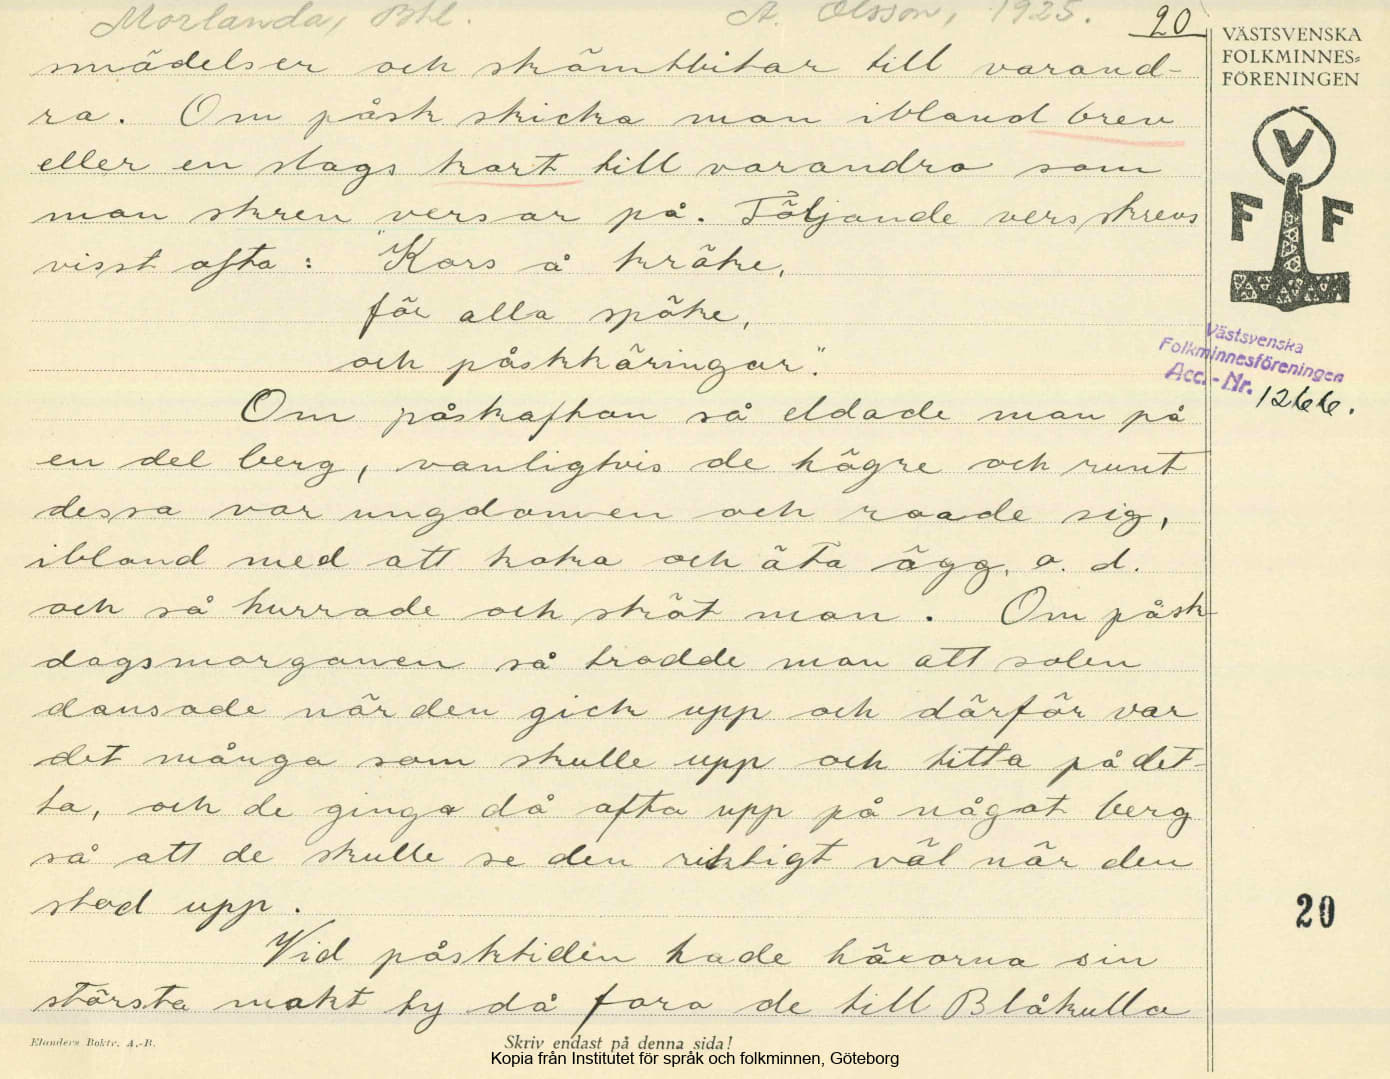 Morlanda, Bhl. A. Olsson, 1925. 20
smädelser och skämtbitar till varand-
ra. Om påsk skicka man ibland brev
eller en slags kort till varandra som
man skren versar på. Följande vers skrevs
visst ofta: "Kors å kräke,
för alla spöke,
och påskkäringar."
Om påskafton så eldade man på
en del berg, vanligtvis de högre och runt
dessa var ungdomen och roade sig,
ibland med att koka och äta ägg. o. d.
och så hurrade och sköt man. Om påsk
dagsmorgonen så trodde man att solen
dansade när den gick upp och därför var
det många som skulle upp och titta på det-
ta, och de gingo då ofta upp på något berg
så att de skulle se den riktigt väl när den
stod upp.
Vid påsktiden hade häxorna sin
största makt ty då foro de till Blåkulla
VÄSTSVENSKA
FOLKMINNES=
FÖRENINGEN
V
F F
Västsvenska
Folkminnesföreningen
Acc.-Nr. 1266.
20
Elanders Boktr. A.-B.
Skriv endast på denna sida!
Kopia från Institutet för språk och folkminnen, Göteborg